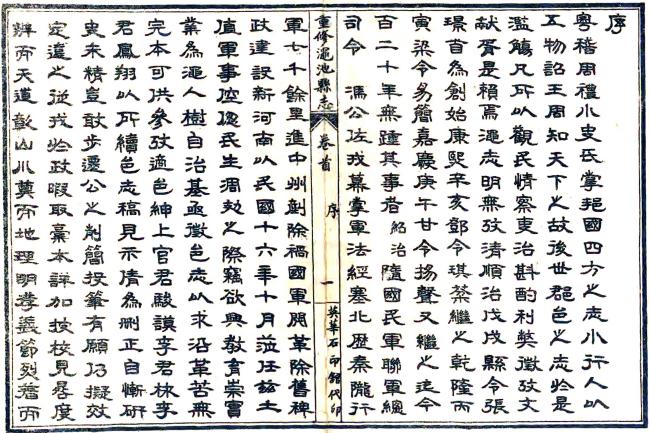 序
粵稽周禮小史氏掌邦國四方之志小行人以
五物詔王周知天下之故後世郡邑之志於是
濫觴凡所以觀民情察吏治斟酌利獘徵攷文
献胥是賴焉澠志明無攷清順治戊戌縣令張
璟首為創始康熙辛亥鄧令琪棻繼之乾隆丙
寅梁令易簡嘉慶庚午甘令揚聲又繼之迄今
百二十年無踵其事者紹治隨國民軍聯軍總
司令 馮公佐戎幕掌軍法經塞北歷秦隴行
重修澠池縣志
卷首
序
一
英華石印舘代印
軍七千餘里進中州剷除禍國軍閥革除舊稗
政建設新河南以民國十六年十月蒞任玆土
值軍事倥傯民生凋劾之際竊欲興教育崇實
業為澠人樹自治基亟徵邑志以求沿革苦無
完本可供參攷適邑紳上官君駿謨李君林李
君鳳翔以所續邑志稿見示倩為刪正自慚研
史未精豈敢步遷公之削簡投筆有願乃擬效
定遠之從戎於政暇取稾本詳加按校見晷度
辨而天道彰山川奠而地理明孝義節烈著而